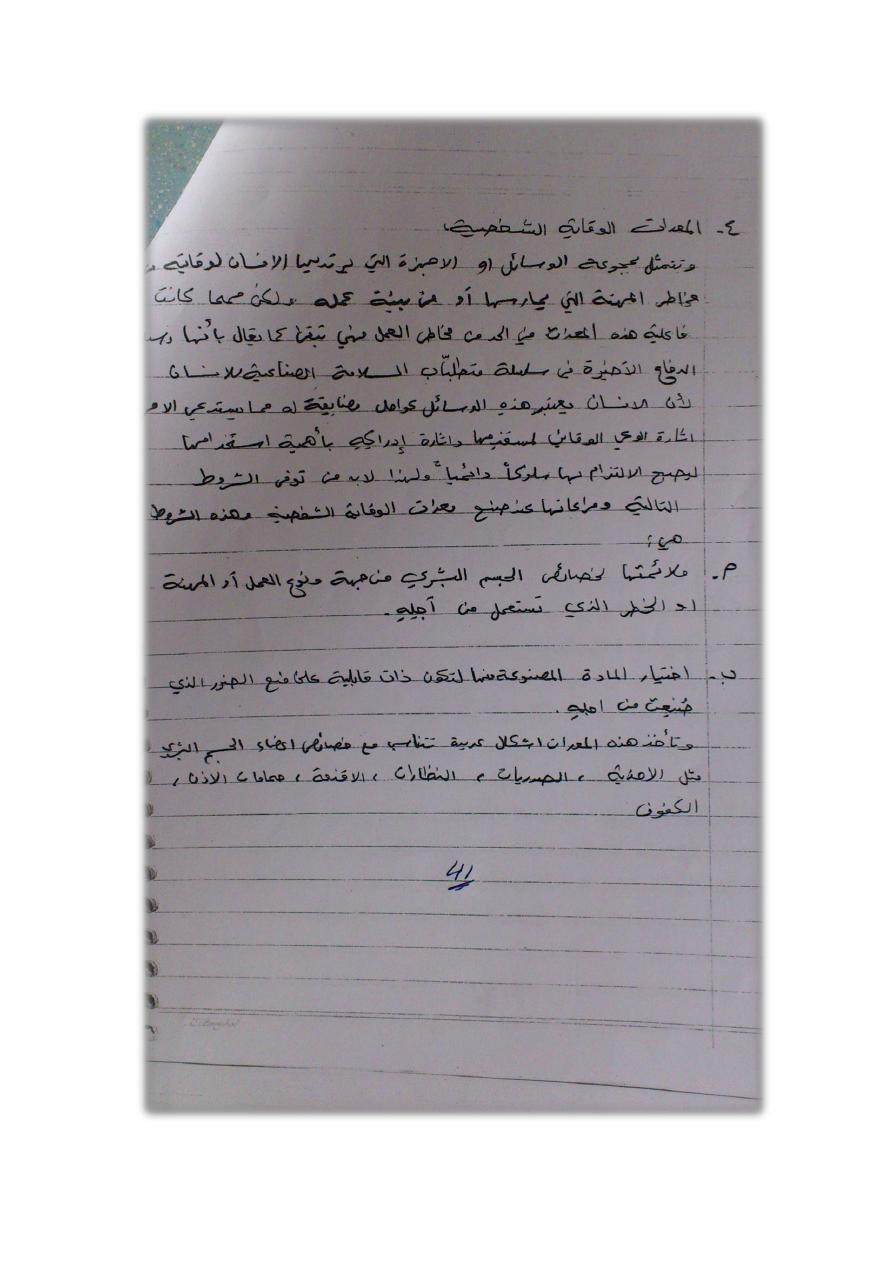 ٤- المعدات الوقاية الشخصية.
وتتمثل بمجموعة الوسائل او الاجهزة التي يرتديها الانسان لوقايته من
مخاطر المهنة التي يمارسها أو من بيئة عمله ولكن مهما كانت
فاعلية هذه المعدات في الحد من مخاطر العمل فهي تبقى كما يقال بأنها
الدفاع الأخيرة في سلسلة متطلبات السلامة الصناعية للانسان
لأن الانسان يعتبر هذه الوسائل عوامل مضايقة له مما يستدعي الامر
اثارة الوعي الوقائي لمستخدميها واثارة إدراكه بأهمية استخدامها
ليصبح الالتزام بها سلوكاً دائمياً ولهذا لابد من توفر الشروط
التالية ومراعاتها عند صنع معدات الوقاية الشخصية وهذه الشروط
هي:
م- ملائمتها لخصائص الجسم البشري من جهة ونوع العمل أو المهنة
او الخطر الذي تستعمل من أجله.
ب- اختيار المادة المصنوعة منها لتكون ذات قابلية على منع الضرر الذي
صُنعت من اجله.
وتأخذ هذه المعدات اشكال عديدة تتناسب مع خصائص اعضاء الجسم البشري
مثل الاحذية ، الصدريات ، النظارات ، الاقنعة ، صمامات الاذن ،
الكفوف
41